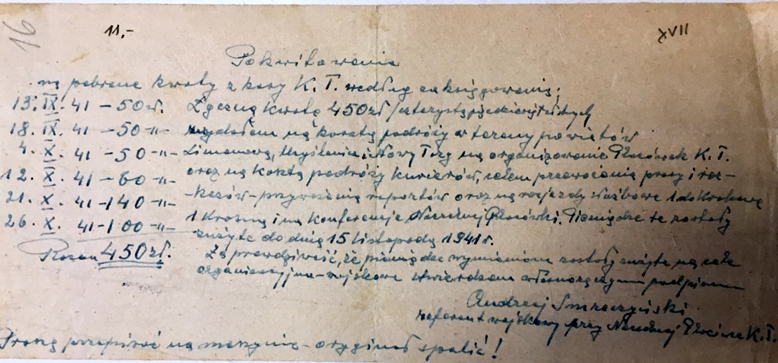 16
11,-
XVII
Pokwitowanie
na pobrane kwoty z kasy K.T. według zaksięgowania;
13. IX. 41 – 50 zł. Łączną kwotę 450 zł /czterysta pięćdziesiąt złotych
18. IX. 41 – 50 –"– wydałem na koszta podróży w tereny powiatów
4. X. 41 – 50 –"– Limanowa, Myślenice i Nowy Targ na organizowanie Placówek K.T.
12. X. 41 – 60 –"– oraz na koszta podróży kurierów celem przewożenia prasy i roz-
21. X. 41 – 140 –"– kazów – przywożenia raportów oraz na wyjazdy służbowe 1 do Krakowa
26. X. 41 – 100 –"– 1 Krosna i na Konferencje Naczelnej Placówki. Pieniądze te zostały
Razem 450 zł. zużyte do dnia 15 listopada 1941 r.
Za prawdziwość, że pieniądze wymienione zostały zużyte na cele
organizacyjno-wojskowe stwierdzam własnoręcznym podpisem
Andrzej
referent wojskowy przy Naczelnej Placówce K.T.
Proszę przepisać na maszynie – oryginał spalić!